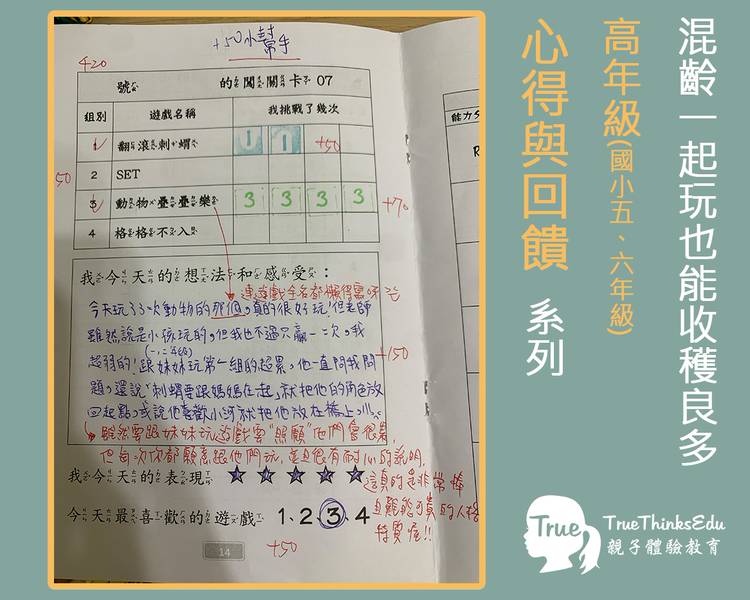 +50小幫手
420
號 的闖關卡 07
組別 遊戲名稱 我挑戰了幾次
1 翻滾刺蝟 1 1 +50
50
2 SET
3 動物疊疊樂 3 3 3 3 +70
4 格格不入
我今天的想法和感受：
連遊戲全名都懶得寫呀
今天玩了3次動物的那個，真的很好玩！但老師
雖然說是小孩玩的，但我也不過只贏一、二次，我
超弱的！跟妹妹玩第一組的超累，他一直問我問
(一、二年級)
+150
題，還說「刺蝟要跟媽媽在一起」就把他的角色放
回起點，或說他喜歡小河就把他放在橋上，
雖然要跟妹妹玩遊戲要"照顧"他們會很累，
但每次你都願意跟他們玩，並且很有耐心的說明，
我今天的表現 ☆☆☆☆☆ 這真的是非常棒
且難能可貴的人格
今天最喜歡的遊戲 1、2、3、4
特質喔!!
14
+50
能力
混齡一起玩也能收穫良多
高年級(國小五、六年級)
心得與回饋 系列
True
TrueThinksEdu
親子體驗教育